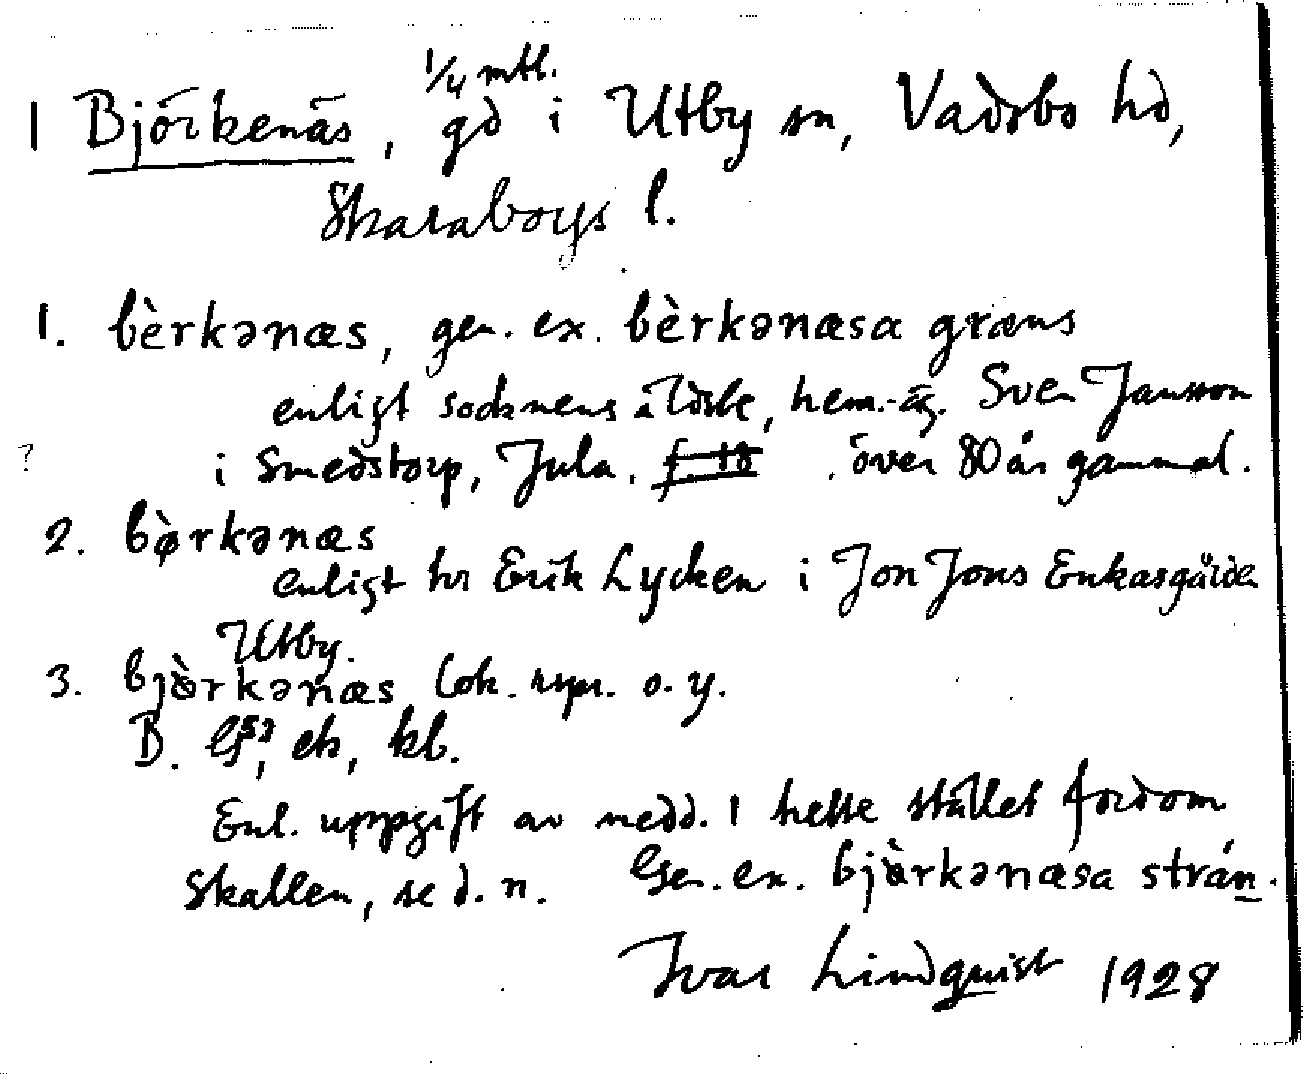 1 Björkenäs, 1/4 mtl. gd i Utby sn, Vadsbo hd,
Skaraborgs l.
1. bèrkənæs, gen. ex. bèrkənæsa græns
enligt socknens äldste, hem.-äg. Sven Jansson
? i Smedstorp, Jula. över 80 år gammal.
2. bø̀rkənæs
enligt hr Erik Lycken i Jon Jons Enkasgården
Utby.
3. bjòrkənæs lok. o. y.
B. ek, kb.
Enl. uppgift av medd. 1 hette stället fordom
Skallen, se d. n. Gen. ex. bjòrkənæsa strán.
Ivar Lindquist 1928